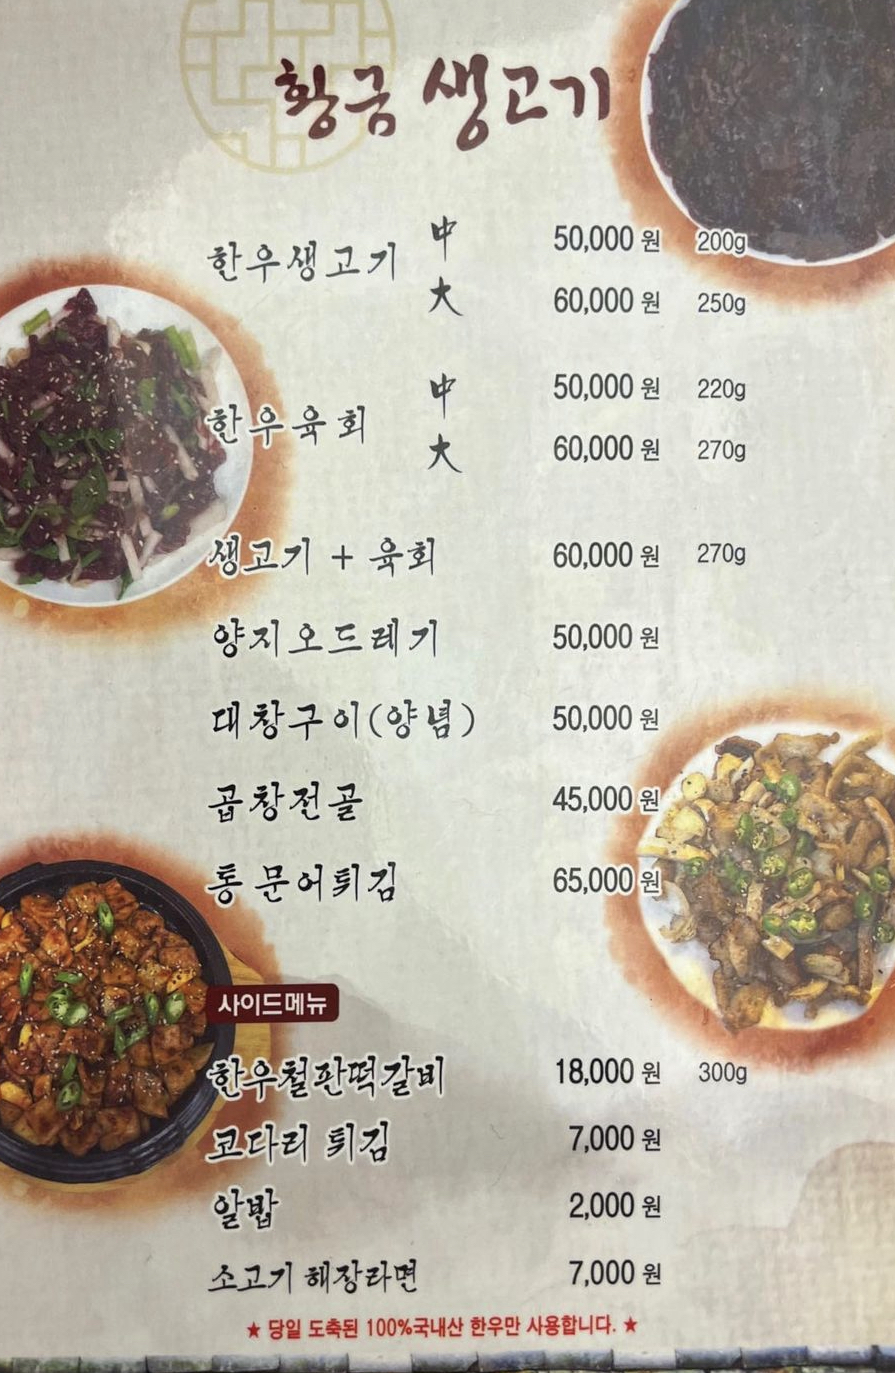 황금 생고기
한우생고기 中 50,000 원 200g
大 60,000 원 250g
한우육회 中 50,000 원 220g
大 60,000 원 270g
생고기 + 육회 60,000 원 270g
양지오드레기 50,000 원
대창구이(양념) 50,000 원
곱창전골 45,000 원
통 문어튀김 65,000 원
사이드메뉴
한우철판떡갈비 18,000 원 300g
코다리 튀김 7,000 원
알밥 2,000 원
소고기 해장라면 7,000 원
★ 당일 도축된 100%국내산 한우만 사용합니다. ★